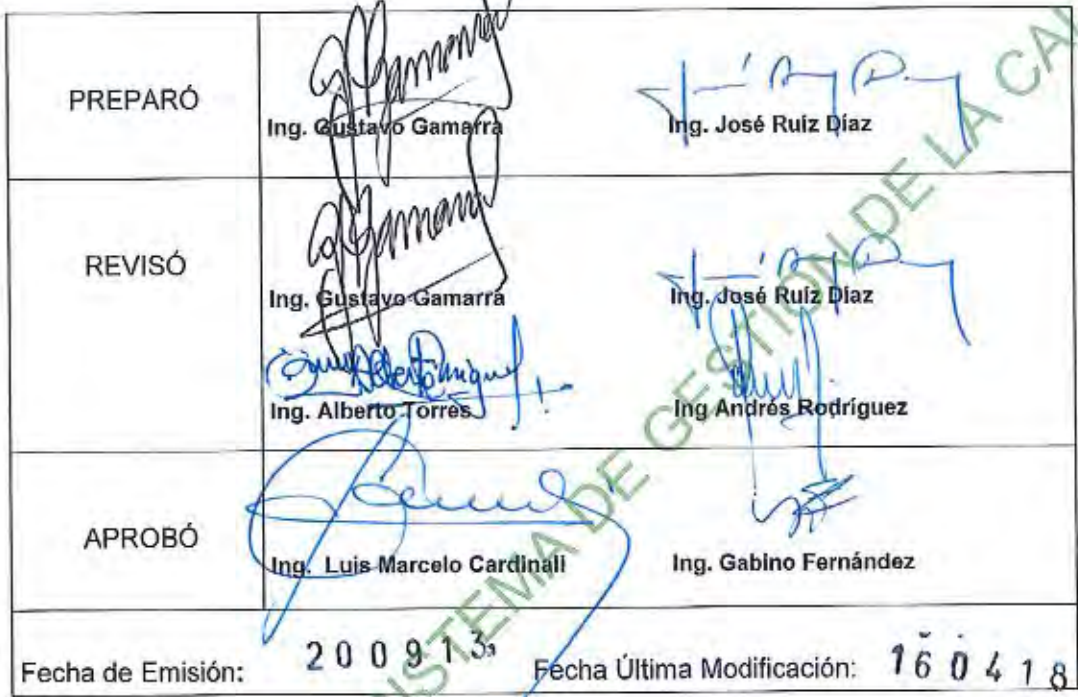 PREPARÓ
Ing. Gustavo Gamarra Ing. José Ruíz Díaz
REVISÓ
Ing. Gustavo Gamarra Ing. José Ruíz Díaz
Ing. Alberto Torres Ing Andrés Rodríguez
APROBÓ
Ing. Luis Marcelo Cardinali Ing. Gabino Fernández
Fecha de Emisión: 200913 Fecha Última Modificación: 160418
DE GESTION DE LA